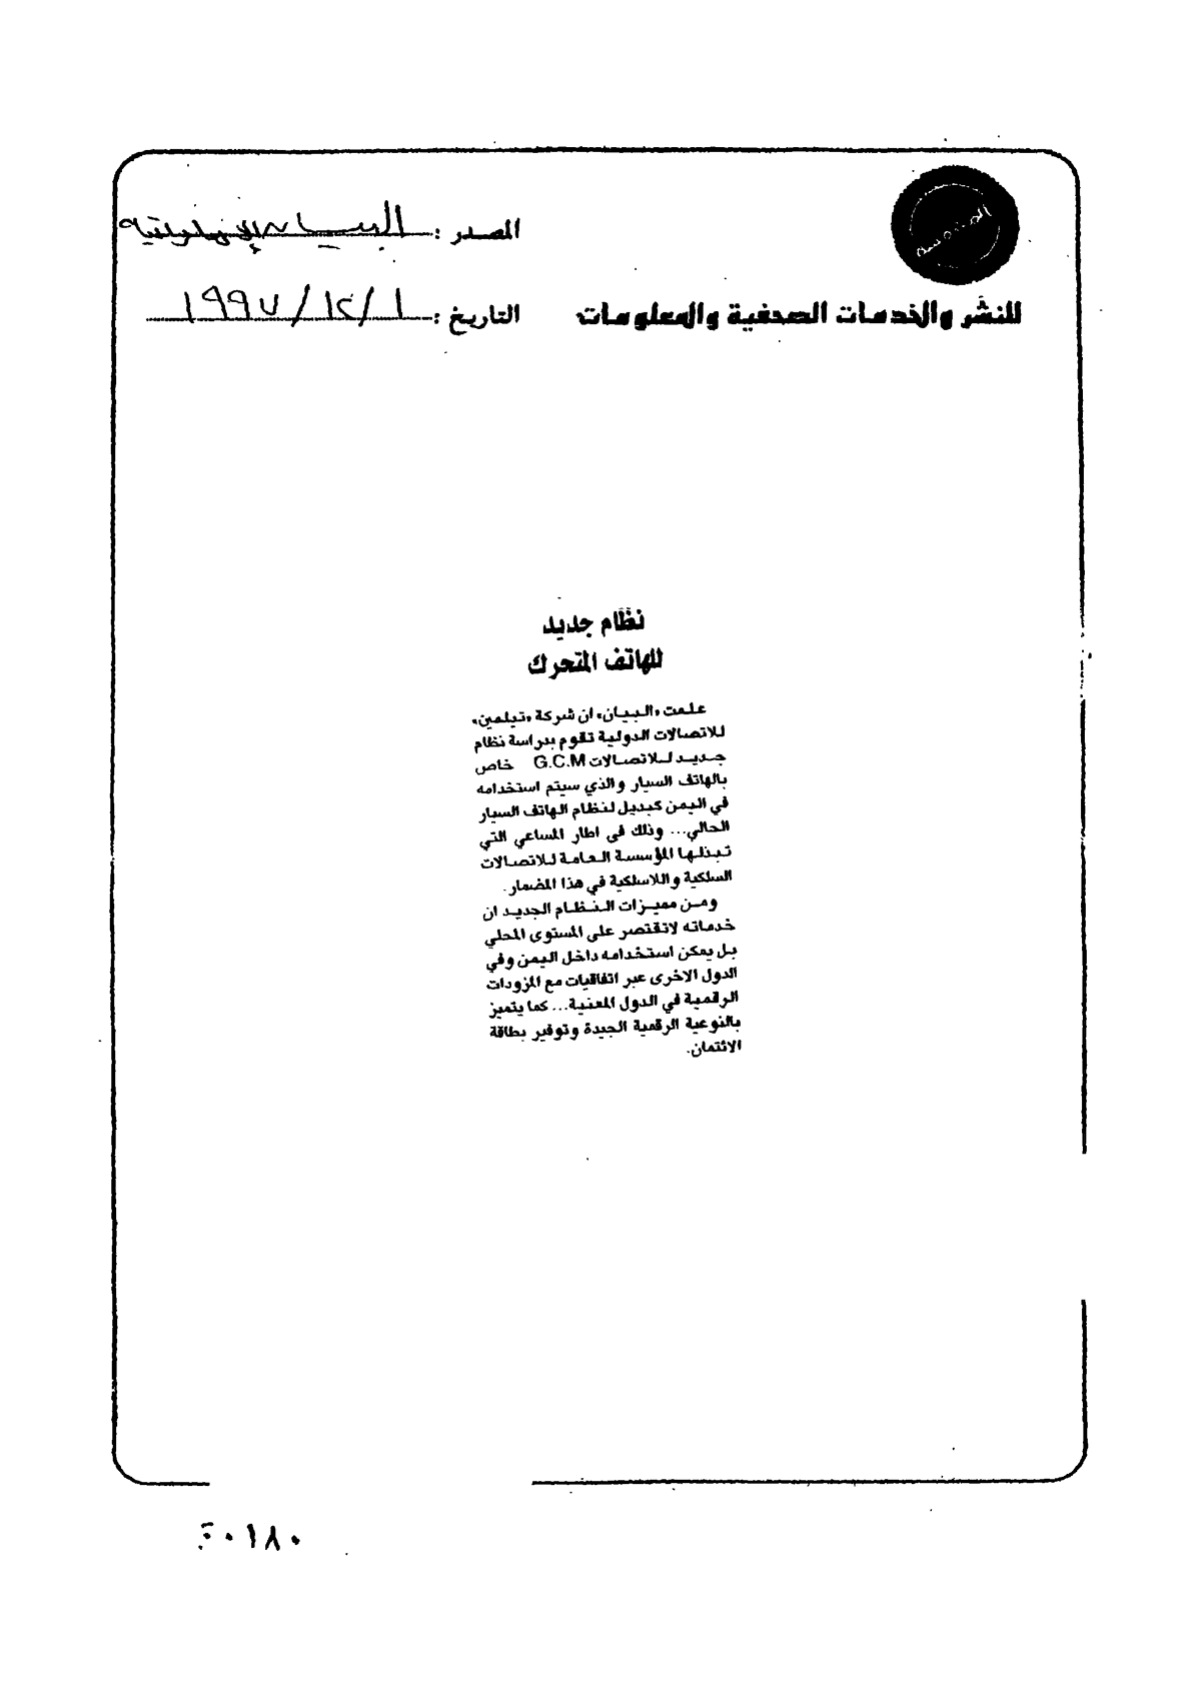 المصدر : البيان الإماراتية
للنشر والخدمات الصحفية والمعلومات
التاريخ : ١٩٩٧/١٢/١
نظام جديد
للهاتف المتحرك
علمت «البيان» ان شركة «تيلمين»
للاتصالات الدولية تقوم بدراسة نظام
جديد للاتصالات G.C.M خاص
بالهاتف السيار والذي سيتم استخدامه
في اليمن كبديل لنظام الهاتف السيار
الحالي... وذلك في اطار المساعي التي
تبذلها المؤسسة العامة للاتصالات
السلكية واللاسلكية في هذا المضمار.
ومن مميزات النظام الجديد ان
خدماته لاتقتصر على المستوى المحلي
بل يمكن استخدامه داخل اليمن وفي
الدول الاخرى عبر اتفاقيات مع المزودات
الرقمية في الدول المعنية... كما يتميز
بالنوعية الرقمية الجيدة وتوفير بطاقة
الائتمان.
٠١٨٠